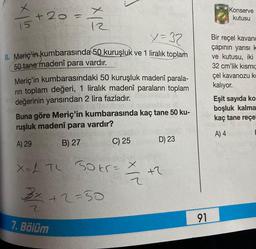 x/15 + 20 = x/12
x=32
8. Meriç'in kumbarasında 50 kuruşluk ve 1 liralık toplam
50 tane madenî para vardır.
Meriç'in kumbarasındaki 50 kuruşluk madenî parala-
rın toplam değeri, 1 liralık madenî paraların toplam
değerinin yarısından 2 lira fazladır.
Buna göre Meriç'in kumbarasında kaç tane 50 ku-
ruşluk madenî para vardır?
A) 29 B) 27 C) 25 D) 23
x=1 TL 50kr = x/2 + 2
3x/2 + 2 = 50
7. Bölüm
91
Konserve
kutusu
Bir reçel kavan
çapının yarısı k
ve kutusu, iki
32 cm'lik kısmı
çel kavanozu k
kalıyor.
Eşit sayıda ko
boşluk kalma
kaç tane reçe
A) 4